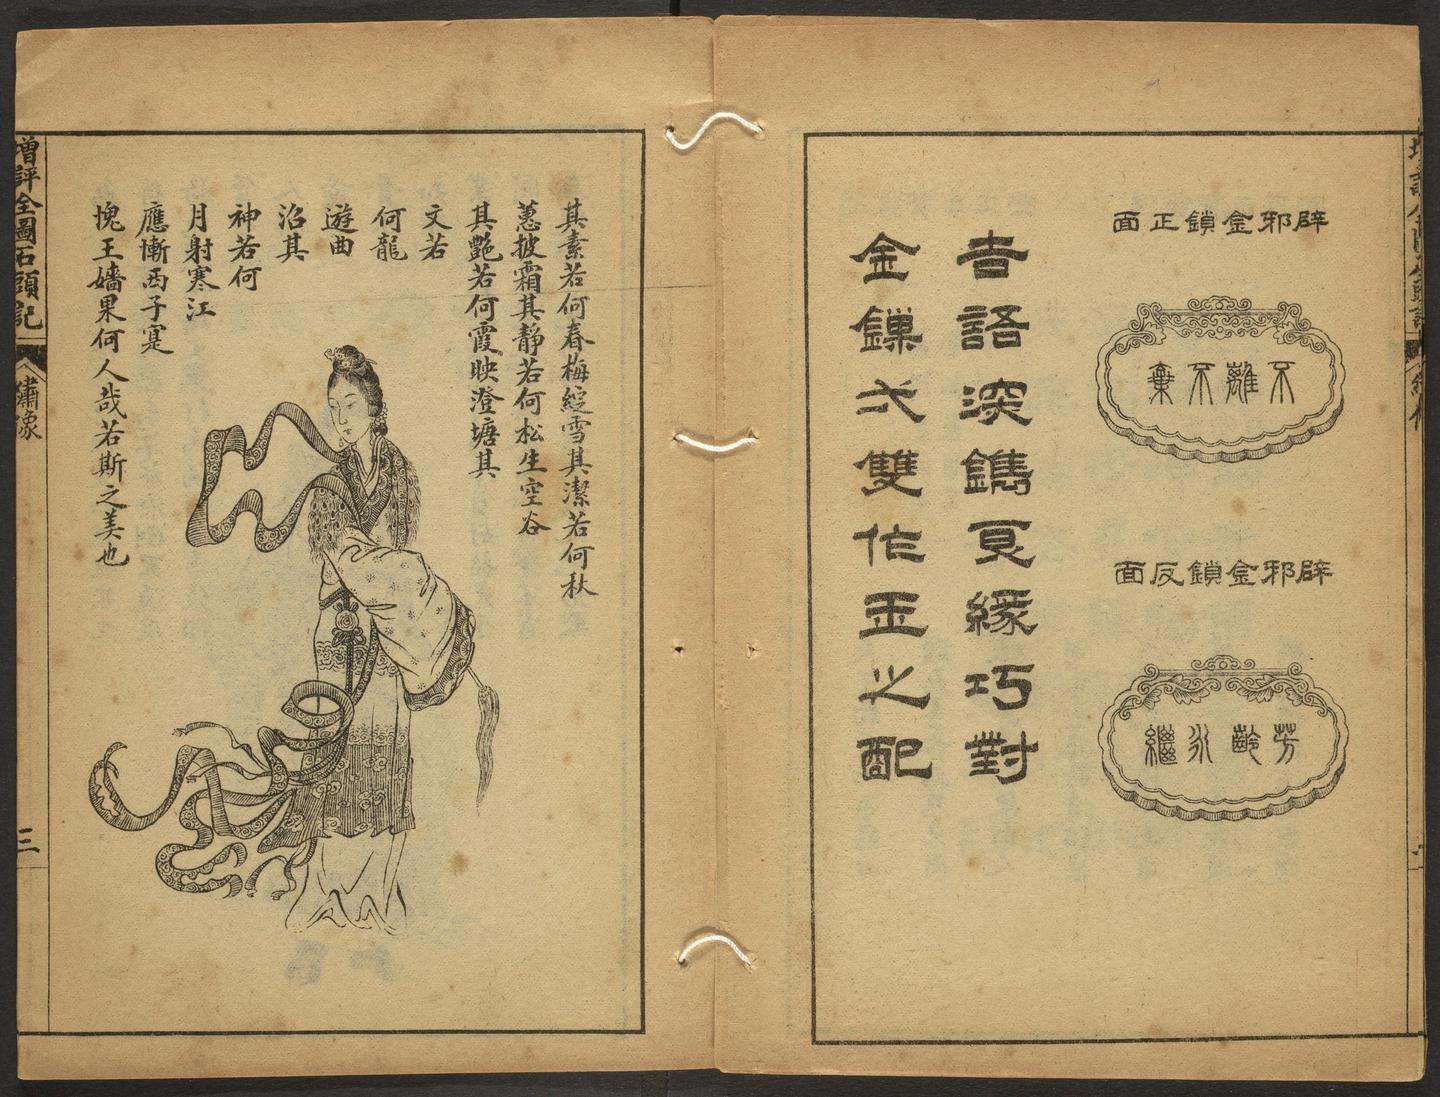 辟邪金鎖正面
不離不棄
辟邪金鎖反面
芳齡永繼
吉語深鐫良緣巧對
金鏁雙作玉之配
其素若何春梅綻雪其潔若何秋
蕙披霜其靜若何松生空谷
其艷若何霞映澄塘其
文若
何龍
遊曲
沼其
神若何
月射寒江
應慚西子寔
愧王嬙果何人哉若斯之美也
增評全圖石頭記
繡像
三